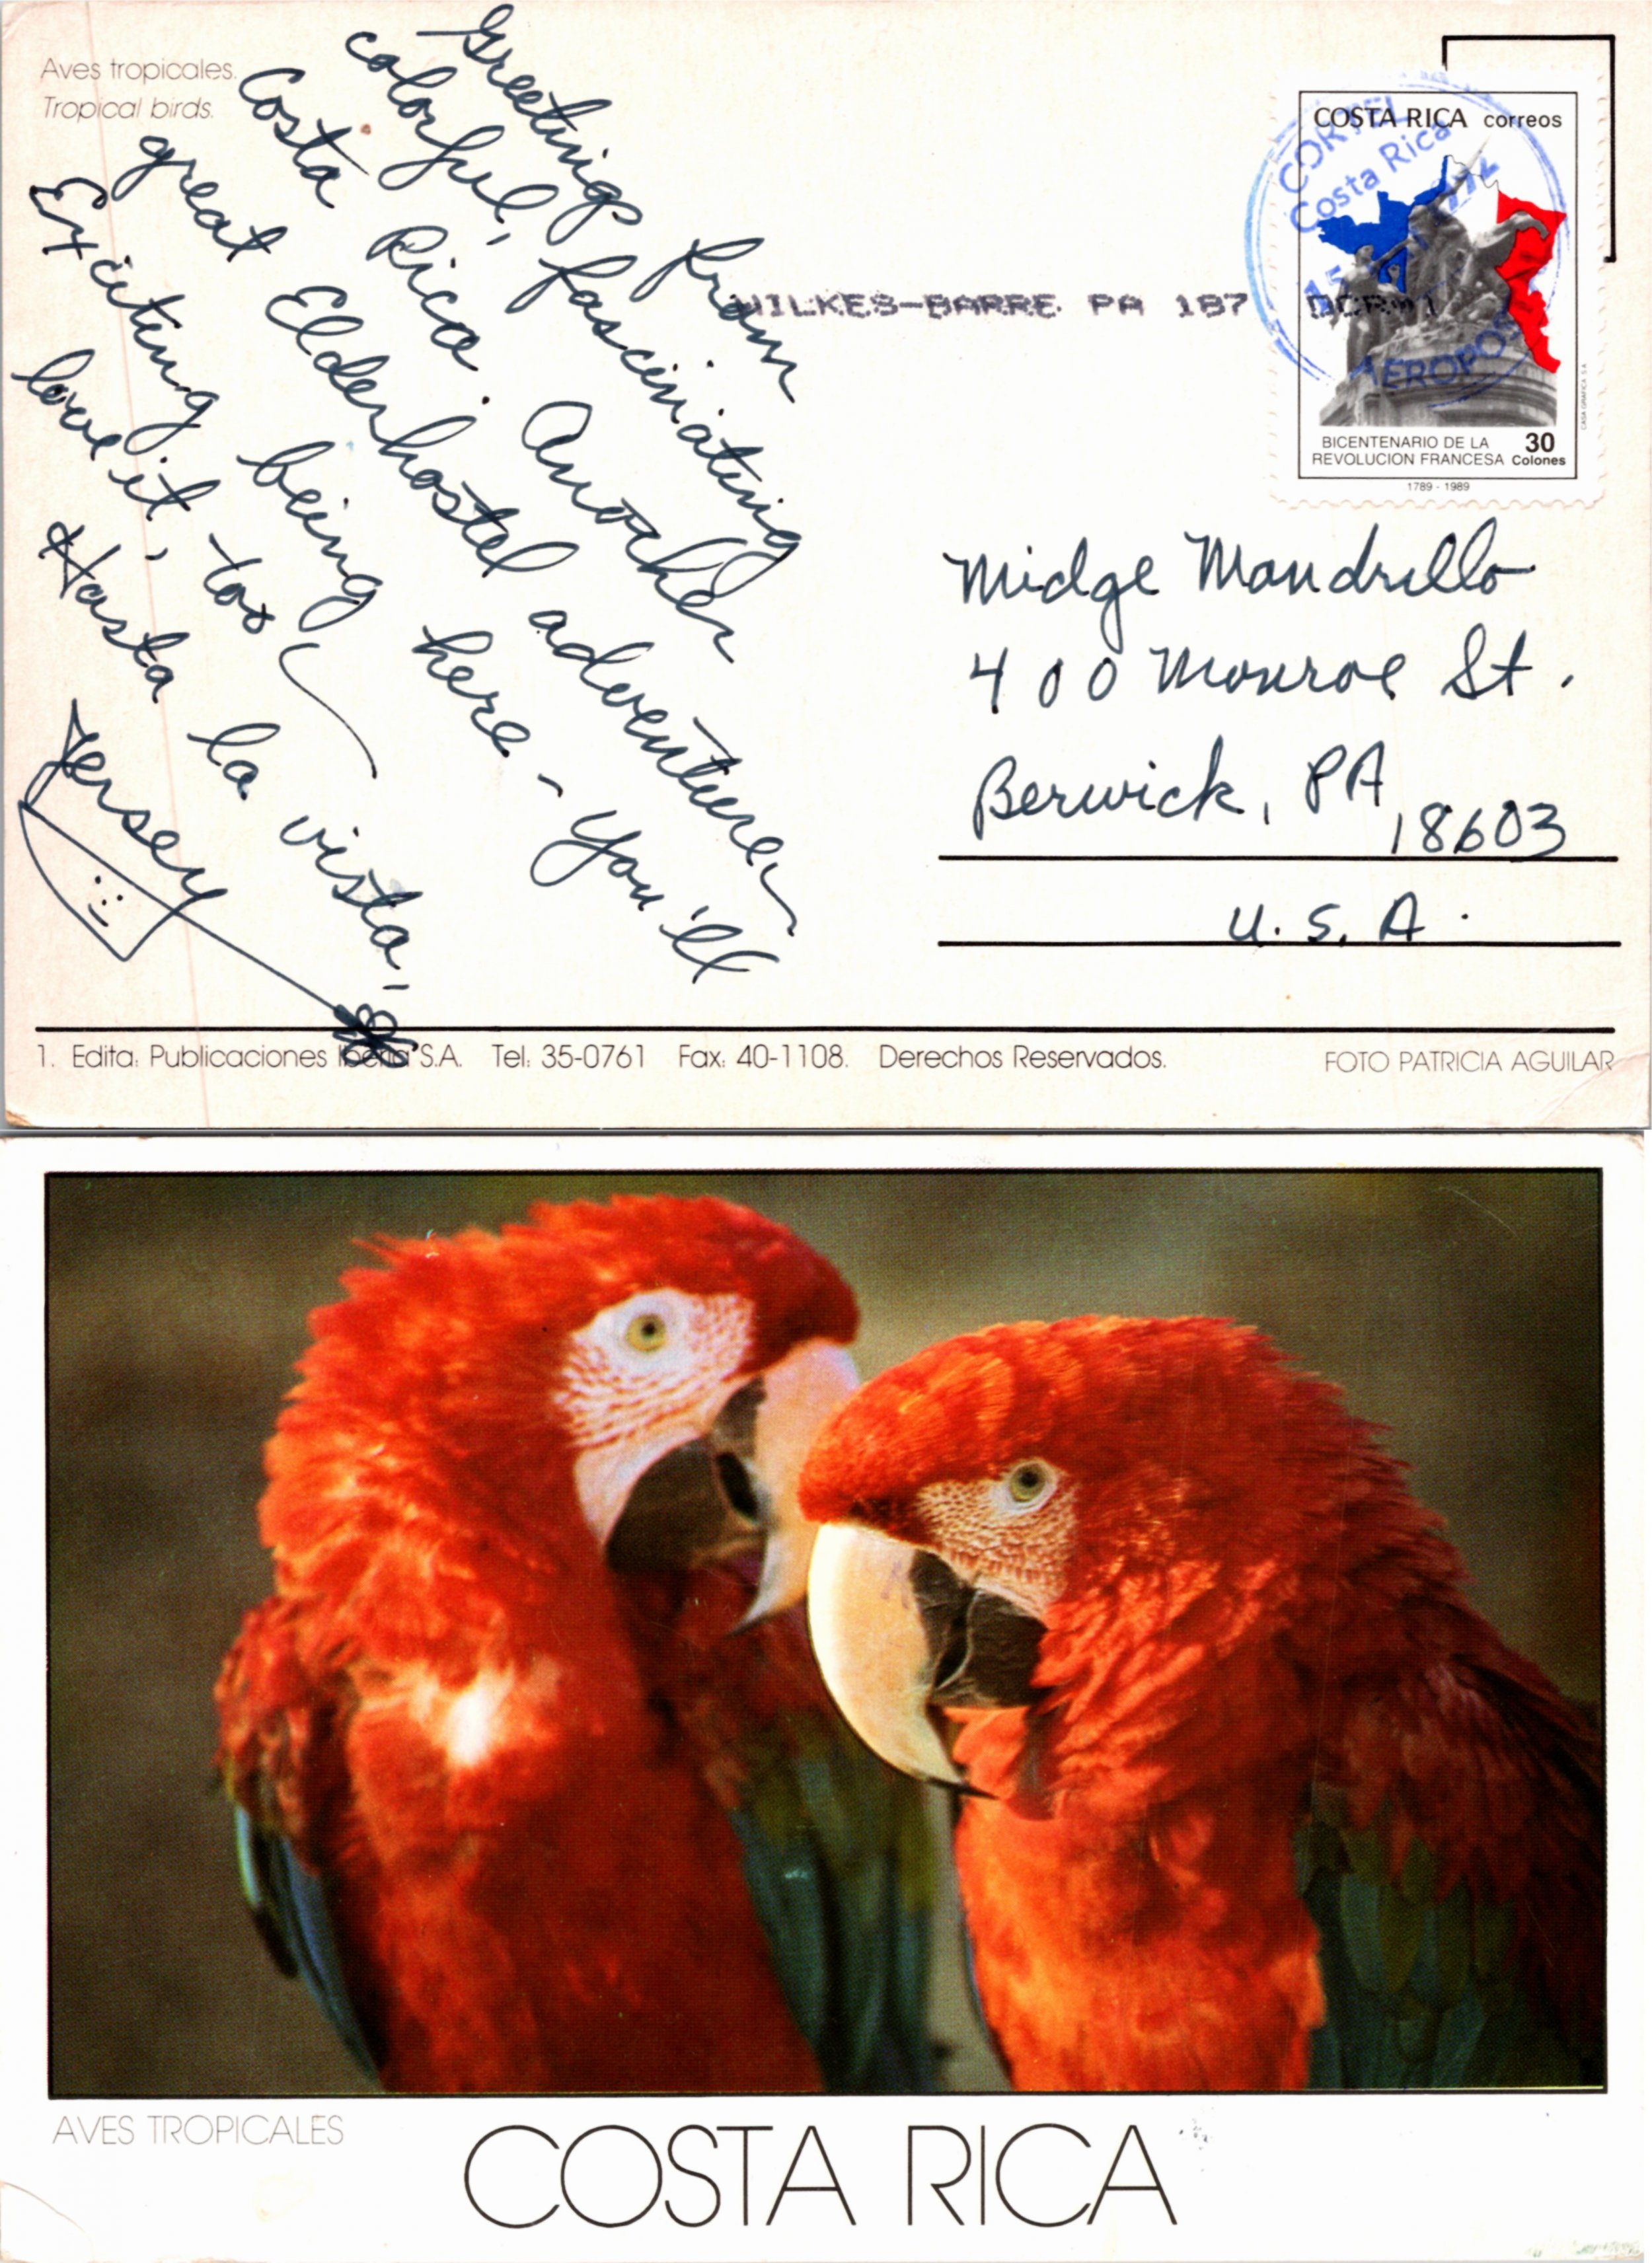 Aves tropicales.
Tropical birds.
Greetings from
colorful, fascinating
Costa Rica. Another
great Elderhostel adventure
Exciting being here - you'll
love it, too
Hasta la vista,
Jersey
COSTA RICA correos
CORTEL
Costa Rica
AEROPOS
BICENTENARIO DE LA
REVOLUCION FRANCESA
30
Colones
1789 - 1989
CASA GRAFICA S.A.
WILKES-BARRE PA 187
Midge Mandrillo
400 Monroe St.
Berwick, PA
18603
U.S.A.
1. Edita: Publicaciones Iberia S.A. Tel: 35-0761 Fax: 40-1108. Derechos Reservados.
FOTO PATRICIA AGUILAR
AVES TROPICALES
COSTA RICA